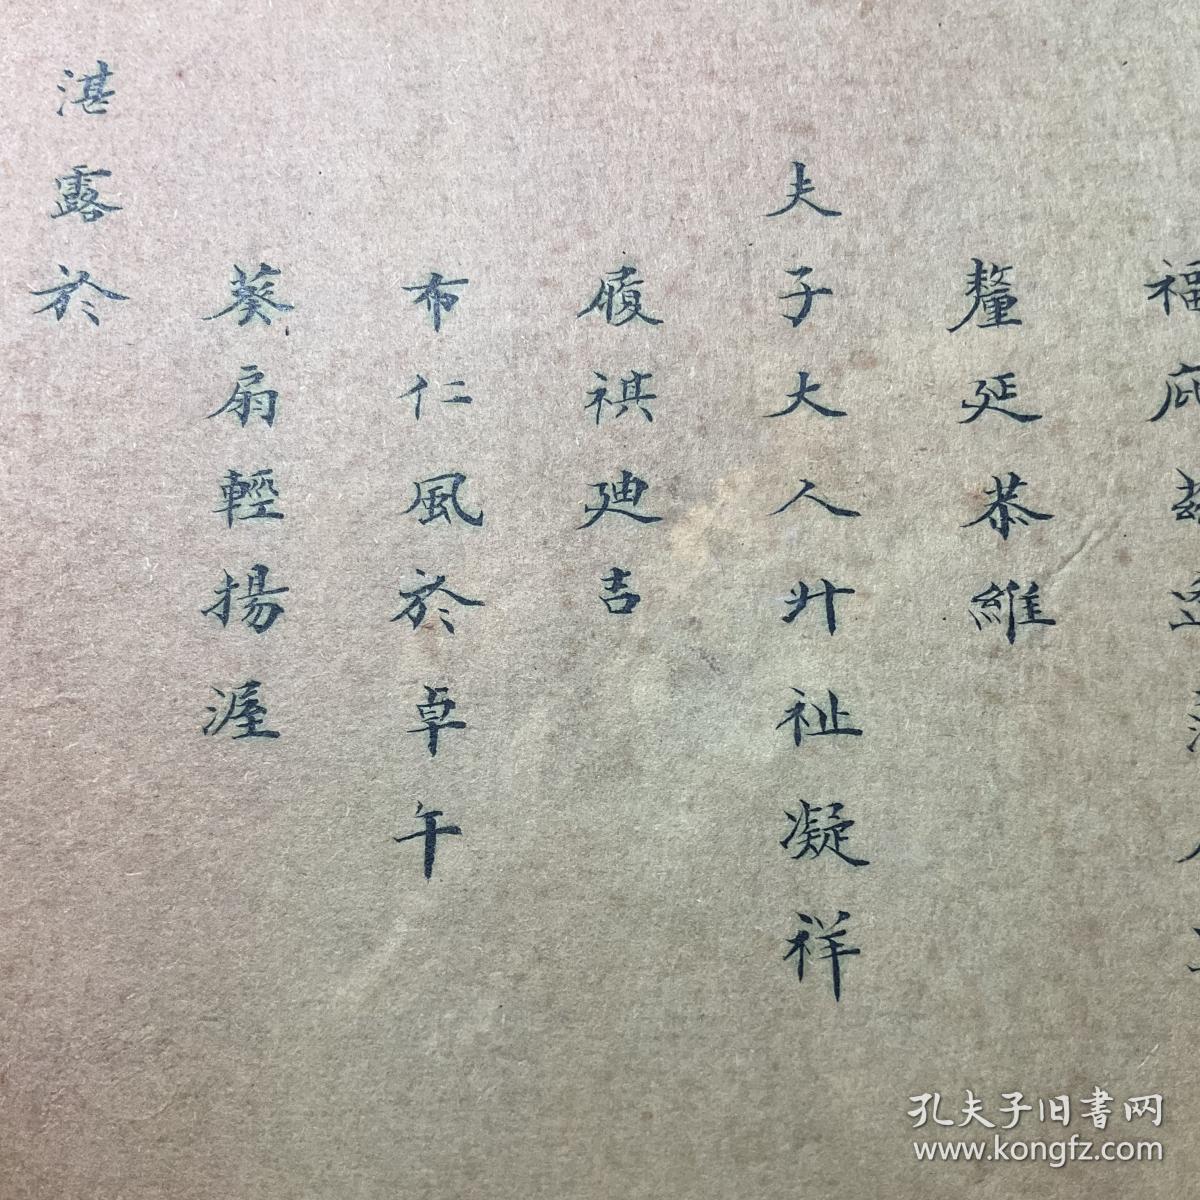 福庇茲
釐延恭維
夫子大人升祉凝祥
履祺迪吉
布仁風於卓午
葵扇輕揚渥
湛露於
孔夫子旧書网
www.kongfz.com